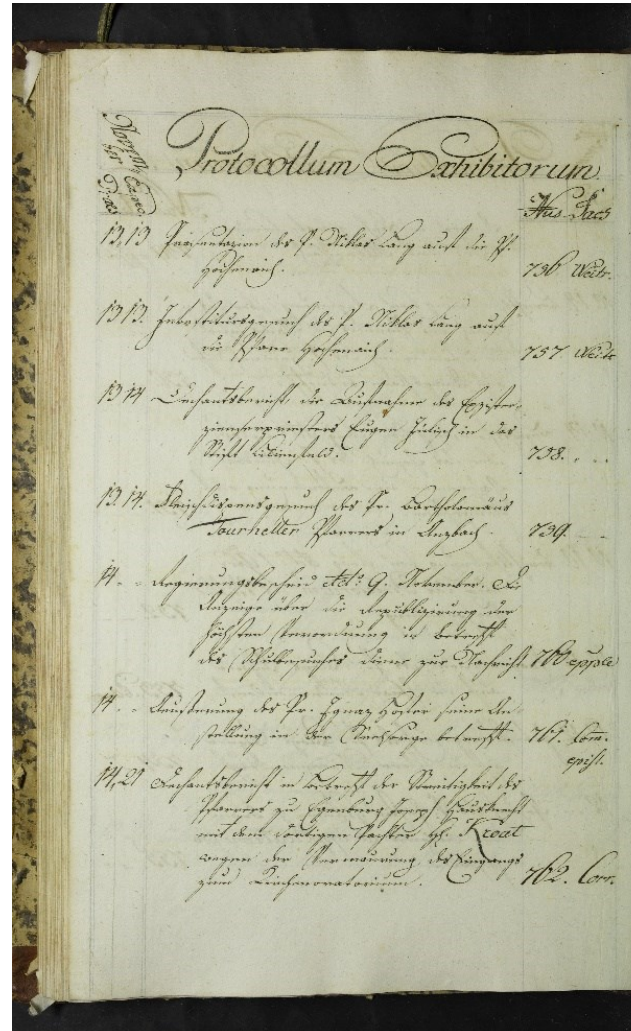 Protocollum Exhibitorum.
Nus Facs
13, 13 Præsentazion des P. Niklas Lang auf die Pf.
Hochenaich. 756 Weitr.
13 13. Investitursgesuch des P. Niklas Lang auf
die Pfarr Hochenaich. 757 Weitr
13 14 Dechantsbericht die Aufnahme des Cyster-
zienserpriesters Eugen in das
Stift Lilienfeld. 758.
13. 14. Fleischdispensgesuch des Pr. Bartholomäus
Tourneller Pfarrers in Anzbach. 759.
14. - Regierungsbescheid dto 9. November. Die
Anzeige über die Republizirung der
höchsten Verordnung in betreff
des Schulbesuches diene zur Nachricht. 760 epple
14. - Äusserung des Pr. Ignaz seine An-
stellung in der Seelsorge betreff. 761. Com.
epist.
14, 21 Dechantsbericht in Betreff der Streitigkeit des
Pfarrers zu Egenburg Joseph
mit dem dortigen Pachter H. Kroat
wegen der Vermaurung des Eingangs
zum Kirchenoratorium. 762. Corr.